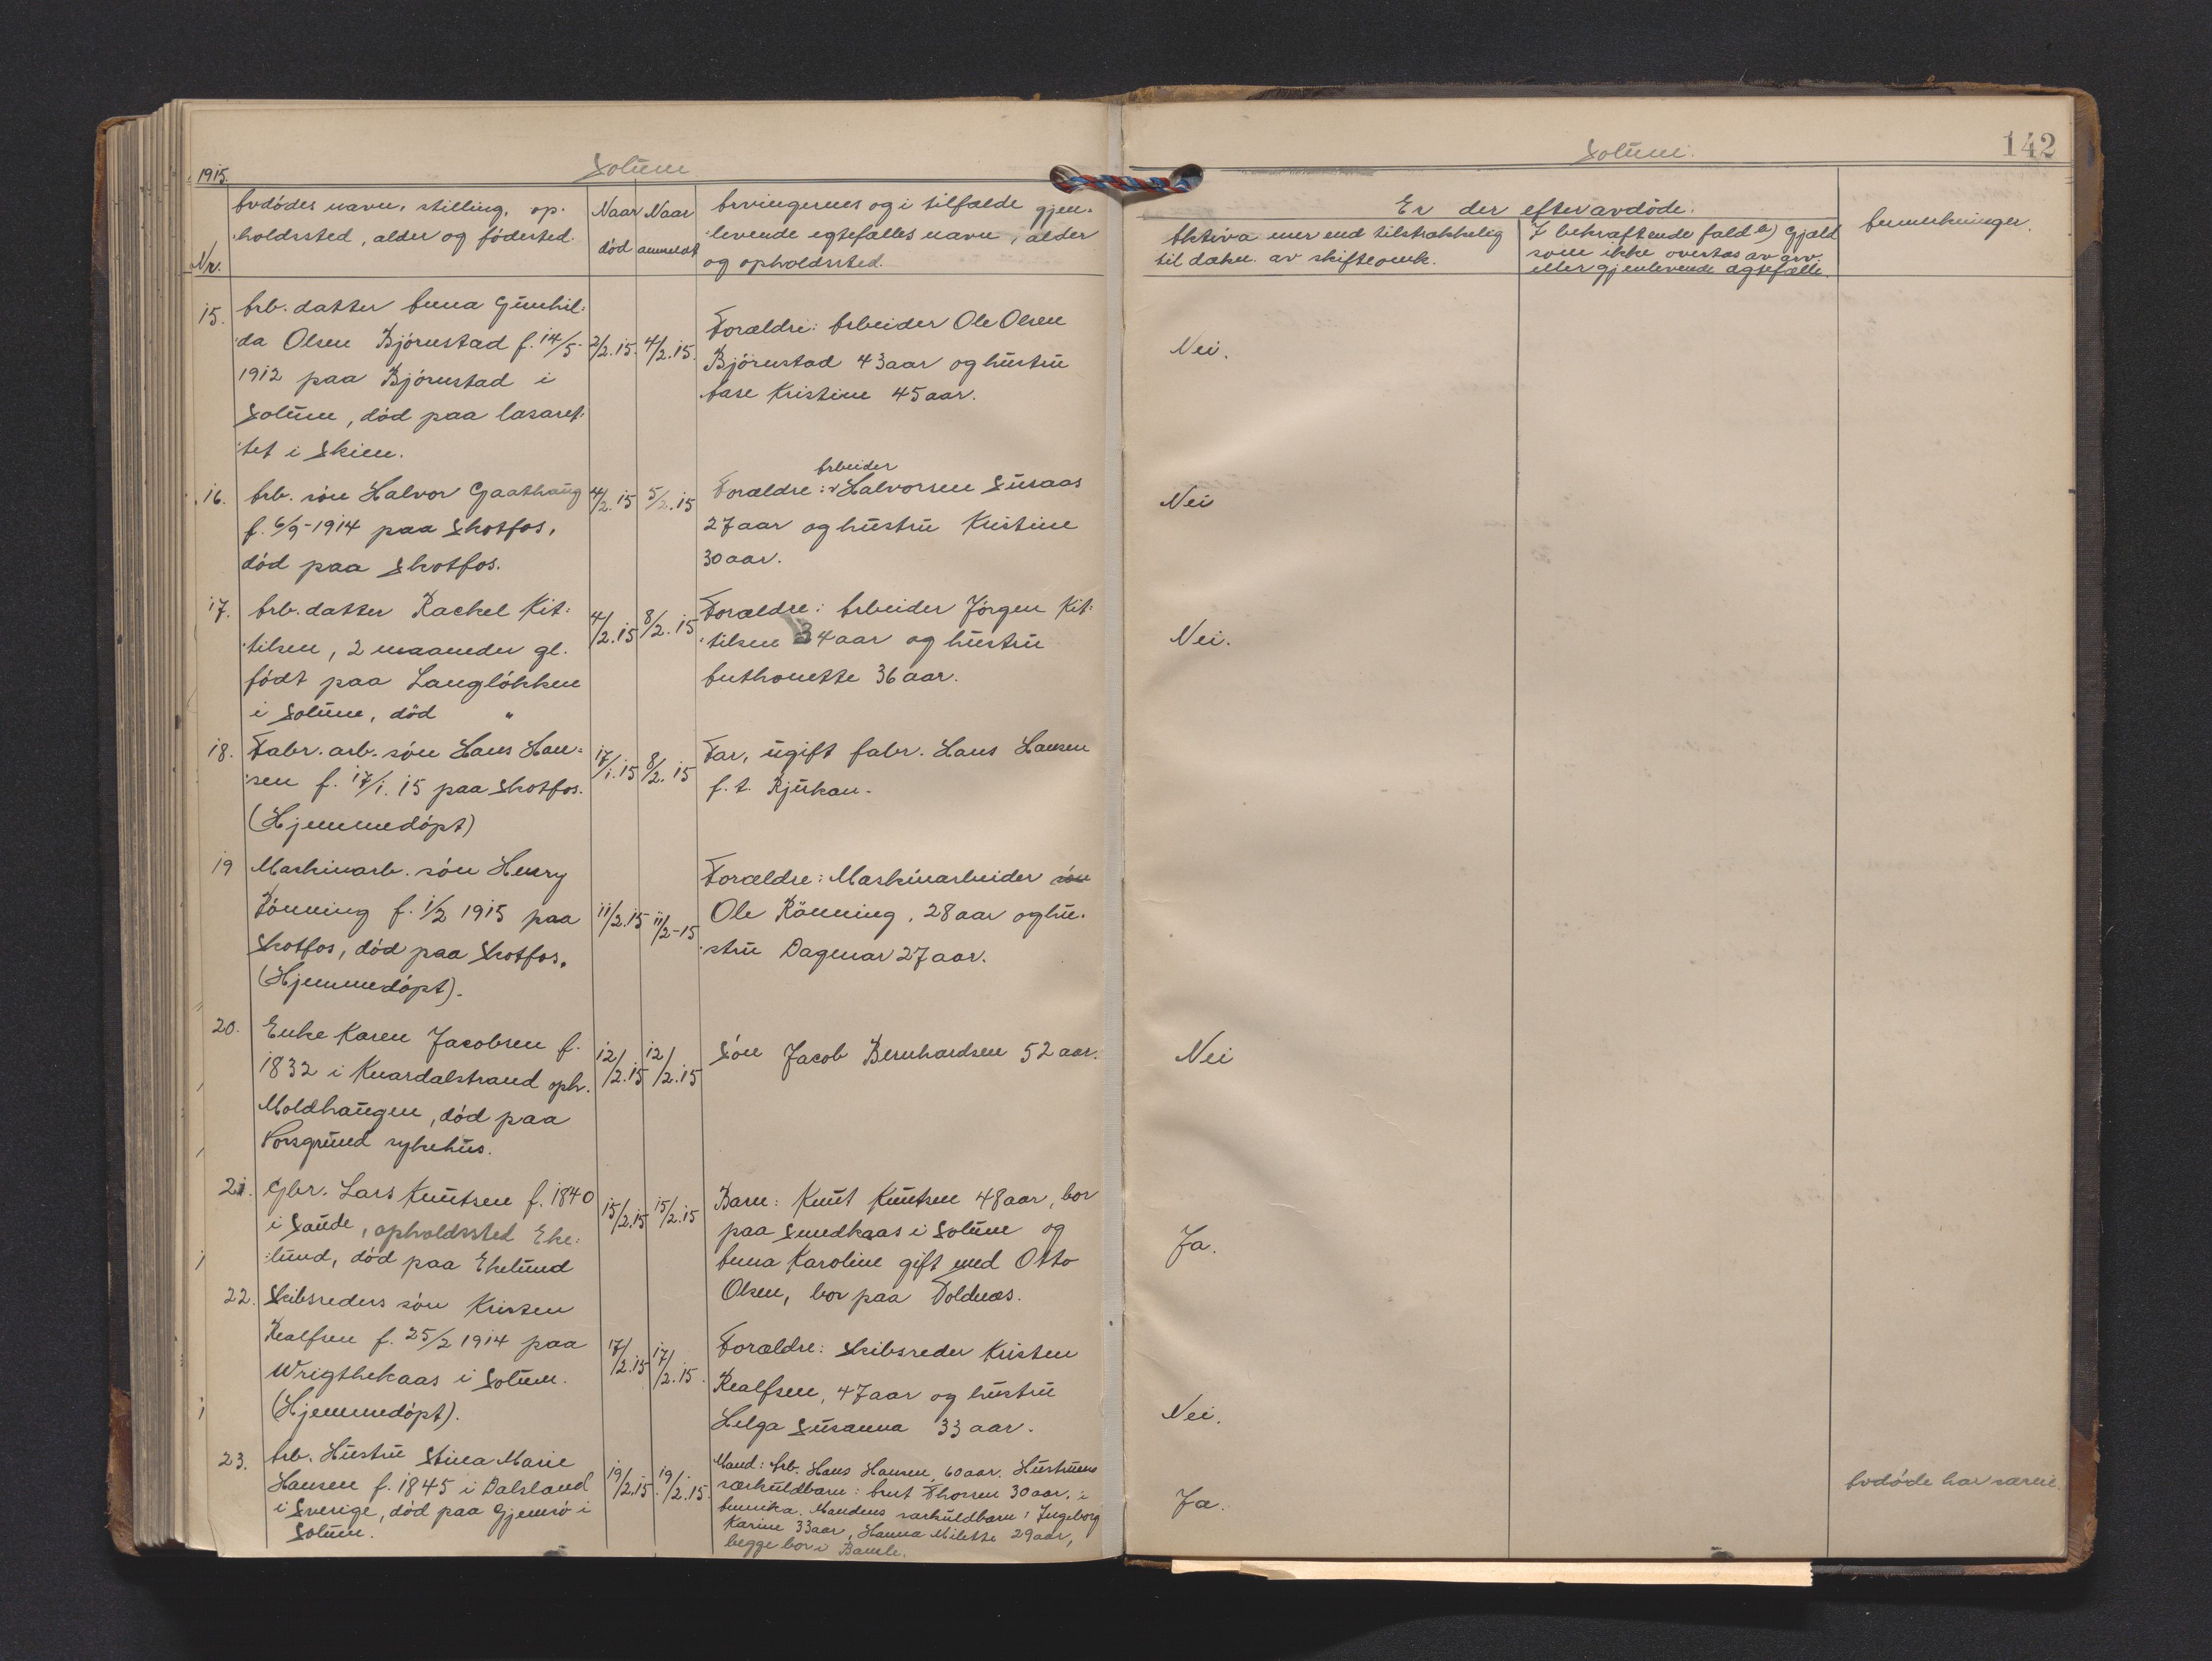 1915.
Solum
Nr.
Avdödes navn, stilling, op-
holdssted, alder og födested.
Naar
död
Naar
anmeldt
Arvingernes og i tilfælde gjen-
levende egtefælles navn, alder
og opholdssted.
15.
Arb. datter Anna Gunhil-
da Olsen Bjørnstad f. 14/5-
1912 paa Bjørnstad i
Solum, död paa lasaret-
tet i Skien.
2/2.15.
4/2.15.
Forældre: Arbeider Ole Olsen
Bjørnstad 43 aar og hustru
Aase Kristine 45 aar.
16.
Arb. søn Halvor Gaathaug
f. 6/9-1914 paa Skotfos,
död paa Skotfos.
4/2.15
5/2.15
Arbeider
Forældre: Halvorsen Susaas
27 aar og hustru Kristine
30 aar.
17.
Arb. datter Rachel Kit-
tilsen, 2 maaneder gl.
født paa Langløkken
i Solum, död "
4/2.15
8/2.15
Forældre: Arbeider Jørgen Kit-
tilsen 34 aar og hustru
Anthonette 36 aar.
18.
Fabr. arb. søn Hans Han-
sen f. 17/1.15 paa Skotfos.
(Hjemmedøpt)
17/1.15
8/2.15
Far, ugift fabr. Hans Hansen
f. t. Rjukan.
19
Maskinarb. søn Henry
Rønning f. 1/2 1915 paa
Skotfos, död paa Skotfos.
(Hjemmedøpt).
11/2.15
11/2-15
Forældre: Maskinarbeider søn
Ole Rönning, 28 aar og hu-
stru Dagmar 27 aar.
20.
Enke Karen Jacobsen f.
1832 i Knardalstrand oph.
Moldhaugen, död paa
Porsgrund sykehus.
12/2.15
12/2.15
Søn Jacob Bernhardsen 52 aar.
21.
Gbr. Lars Knutsen f. 1840
i Saude, opholdssted Eke-
lund, död paa Ekelund
15/2.15
15/2.15
Barn: Knut Knutsen 48 aar, bor
paa Smedkaas i Solum og
Anna Karoline gift med Otto
Olsen, bor paa Toldnæs.
22.
Skibsreders søn Kristen
Realfsen f. 25/2 1914 paa
Wrigthekaas i Solum.
(Hjemmedøpt).
17/2.15
17/2.15.
Forældre: Skibsreder Kristen
Realfsen, 47 aar og hustru
Helga Susanna 33 aar.
23.
Arb. Hustru Stina Marie
Hansen f. 1845 i Dalsland
i Sverige, död paa Gjemsø i
Solum.
19/2.15.
19/2.15.
Mand: Arb. Hans Hansen, 60 aar. Hustruens
særkuldbarn: Arnt Thorsen 30 aar, i
Amerika. Mandens særkuldbarn: Ingeborg
Karine 33 aar, Hanna Milette 29 aar,
begge bor i Bamle.
142
Solum.
Er der efter avdøde.
Aktiva mer end tilstrækkelig
til dækn. av skifteomk.
I bekræftende fald a) Gjæld
som ikke overtas av arv.
eller gjenlevende ægtefælle.
Anmerkninger.
Nei.
Nei
Nei.
Nei
Ja.
Nei.
Ja.
Avdøde har særeie.